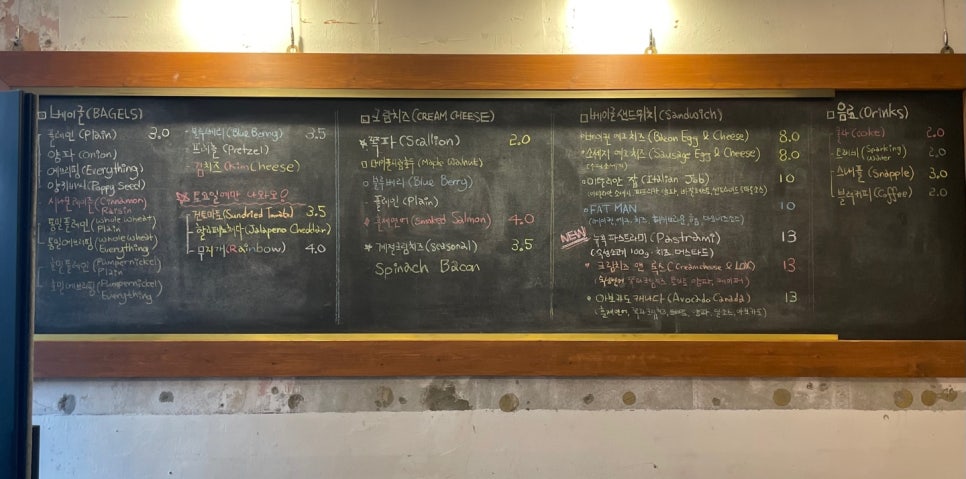 베이글(BAGELS)
플레인(Plain) 3.0
양파(onion)
에브리띵(Everything)
양귀비씨(Poppy Seed)
시나몬레이즌(Cinnamon Raisin)
통밀플레인(Whole wheat Plain
통밀에브리띵(Whole wheat Everything
호밀플레인(Pumpernickel Plain
호밀에브리띵(Pumpernickel Everything
블루베리(Blue Berry) 3.5
프레즐(Pretzel)
김치즈(KimCheese)
토요일에만 나와요?
썬토마토(Sundried Tomato) 3.5
할라피뇨체다(Jalapeno Cheddar)
무지개(Rainbow) 4.0
크림치즈(CREAM CHEESE)
쪽파(Scallion) 2.0
메이플시럽호두(Maple Walnut)
블루베리(Blue Berry)
플레인(Plain)
훈제연어(Smoked Salmon) 4.0
계절크림치즈(seasonal) 3.5
Spinach Bacon
베이글샌드위치(Sandwich)
베이컨 에그치즈(Bacon Egg & Cheese) 8.0
소세지 에그치즈(Sausage Egg & Cheese) 8.0
이탈리안 잡(Italian Job) 10
FAT MAN 10
NEW 뉴욕 파스트라미(Pastrami) 13
100g 치즈 머스타드)
크림치즈 앤 록스(Creamcheese & LOX) 13
아보카도 캐나다(Avocado Canada) 13
음료(Drinks)
콜라(coke) 2.0
트레비(Sparking Water 2.0
스내플(Snapple) 3.0
블랙커피(Coffee) 2.0